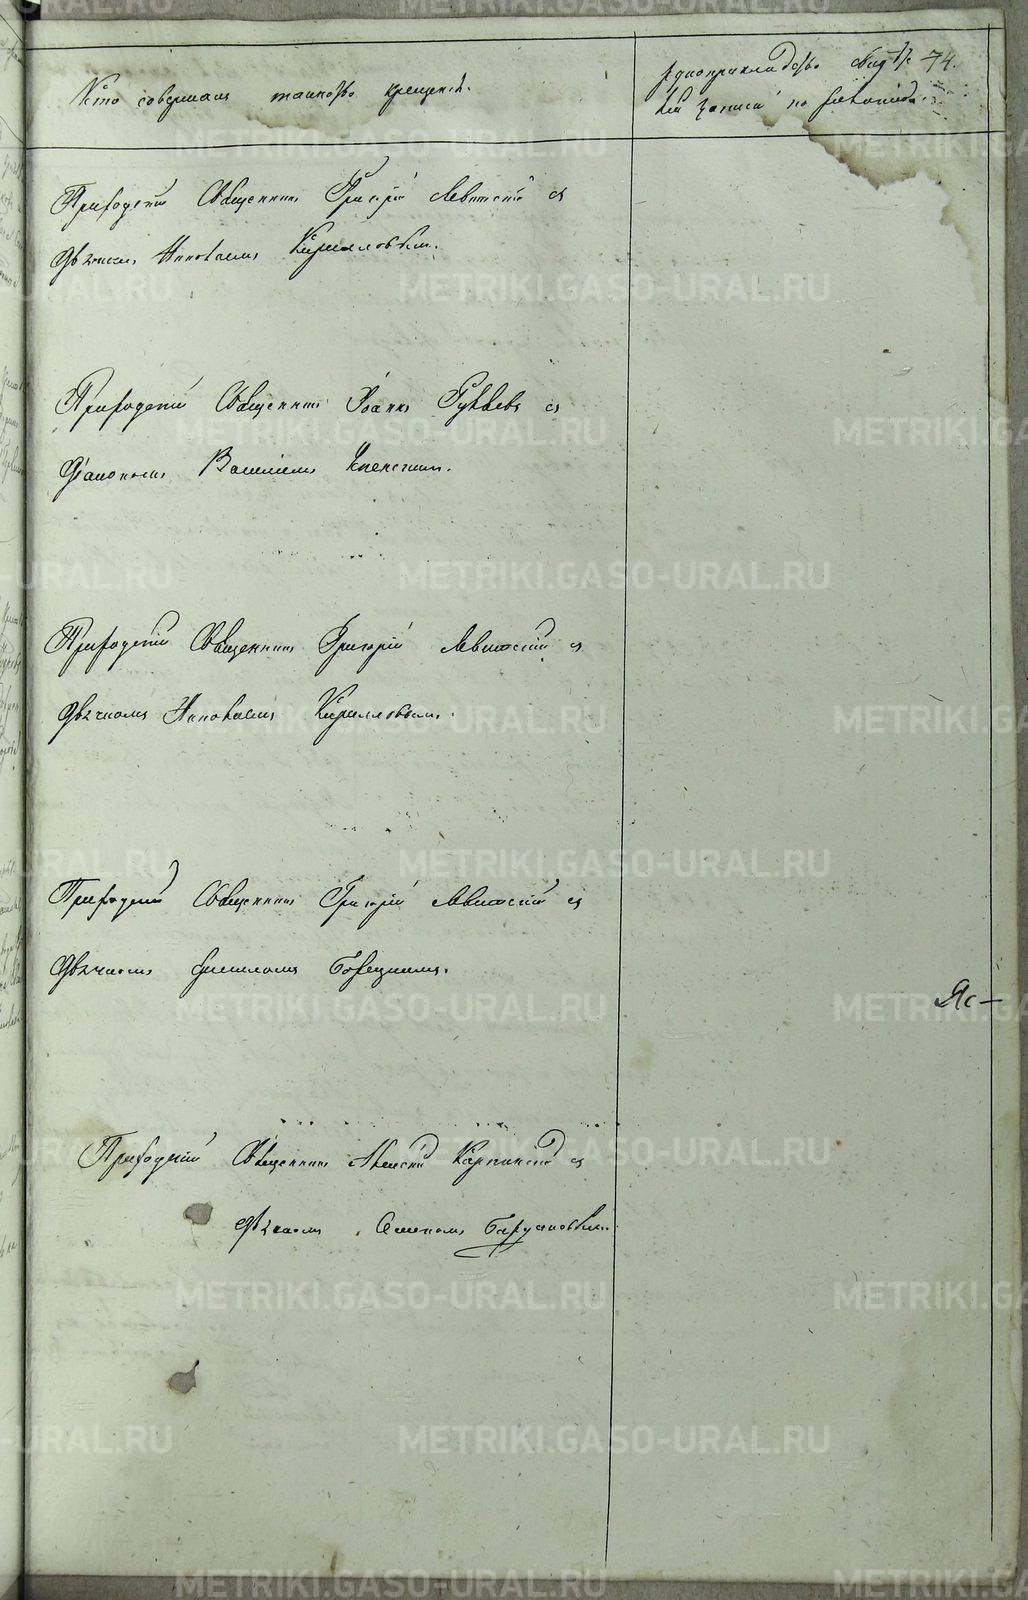 Кто совершалъ таинство крещенія.
рукоприкладство свид 74.
записи по желанію.
Приходскій Священникъ Григорій Левитскій съ
дьячкомъ Николаемъ Кирилловымъ.
Приходскій Священникъ Іоаннъ съ
Діакономъ Василіемъ
Приходскій Священникъ Григорій Левитскій съ
дьячкомъ Николаемъ Кирилловымъ.
Приходскій Священникъ Григорій Левитскій съ
дьячкомъ
Яс–
Приходскій Священникъ Алексій Карпинскій съ
дьячкомъ Семеномъ
METRIKI.GASO-URAL.RU